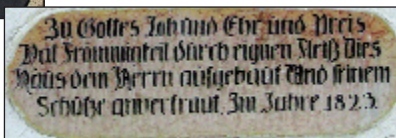 Zu Gottes Lob und Ehr und Preis
Hat Frömmigkeit durch eignen Fleiß Dies
Haus dem Herrn aufgebaut Und seinem
Schutze anvertraut. Im Jahre 1823.